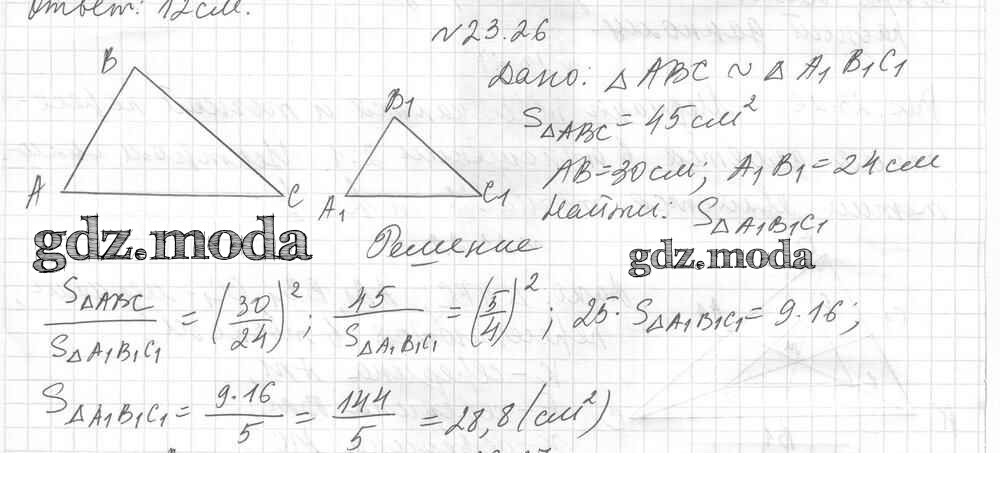 Ответ: 12см.
№23.26
B
Дано: △ABC ~ △A₁B₁C₁
B₁
S△ABC = 45см²
A C A₁ C₁
AB=30см; A₁B₁=24см
Найти: S△A₁B₁C₁
gdz.moda
Решение
gdz.moda
S△ABC / S△A₁B₁C₁ = (30/24)²; 45 / S△A₁B₁C₁ = (5/4)²; 25· S△A₁B₁C₁ = 9·16;
S△A₁B₁C₁ = 9·16 / 5 = 144 / 5 = 28,8 (см²)